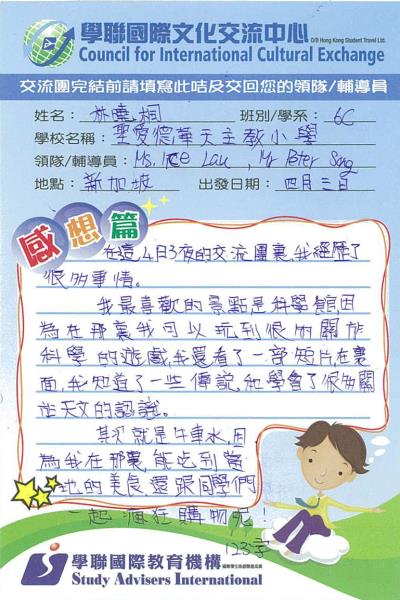 學聯國際文化交流中心 O/B Hong Kong Student Travel Ltd.
Council for International Cultural Exchange
交流團完結前請填寫此咭及交回您的領隊/輔導員
姓名： 林曉桐 班別/學系： 6C
學校名稱： 聖愛德華天主教小學
領隊/輔導員： Ms. Lau , Mr Peter Song
地點： 新加坡 出發日期： 四月三日
感想篇
在這4日3夜的交流團裏，我經歷了
很多事情。
我最喜歡的景點是科學館，因
為在那裏我可以玩到很多關於
科學的遊戲，我還看了一部短片，在裏
面，我知道了一些傳說，和學會了很多關
於天文的認識。
其次就是牛車水，因
為我在那裏能吃到當
地的美食，還跟同學們
一起瘋狂購物呢！
123字
學聯國際教育機構
Study Advisers International